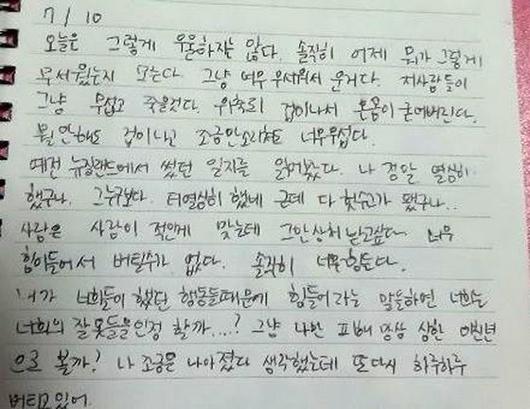 7/10
오늘은 그렇게 우울하지는 않다. 솔직히 어제 뭐가 그렇게
무서웠는지 모른다. 그냥 너무 무서워서 운거다. 저사람들이
그냥 무섭고 죽을것다. 위축되 겁이나서 온몸이 굳어버린다.
뭘 안해도 겁이나고 조금만소리쳐도 너무무섭다.
예전 뉴질랜드에서 썼던 일지를 읽어봤다. 나 정말 열심히
했구나. 그누구보다. 더열심히 했네 근데 다 헛수고가 됐구나..
사람은 사람이 적인게 맞는데 그만상처 받고싶다 너무
힘이들어서 버틸수가 없다. 솔직히 너무힘든다.
내가 너희들이 했던 행동들때문에 힘들어라는 말들하면 너희는
너희의 잘못들을인정 할까....? 그냥 나만 피해 망상 상한 미친년
으로 볼까? 나 조금은 나아졌다 생각했는데 또다시 하루하루
버티고있어.